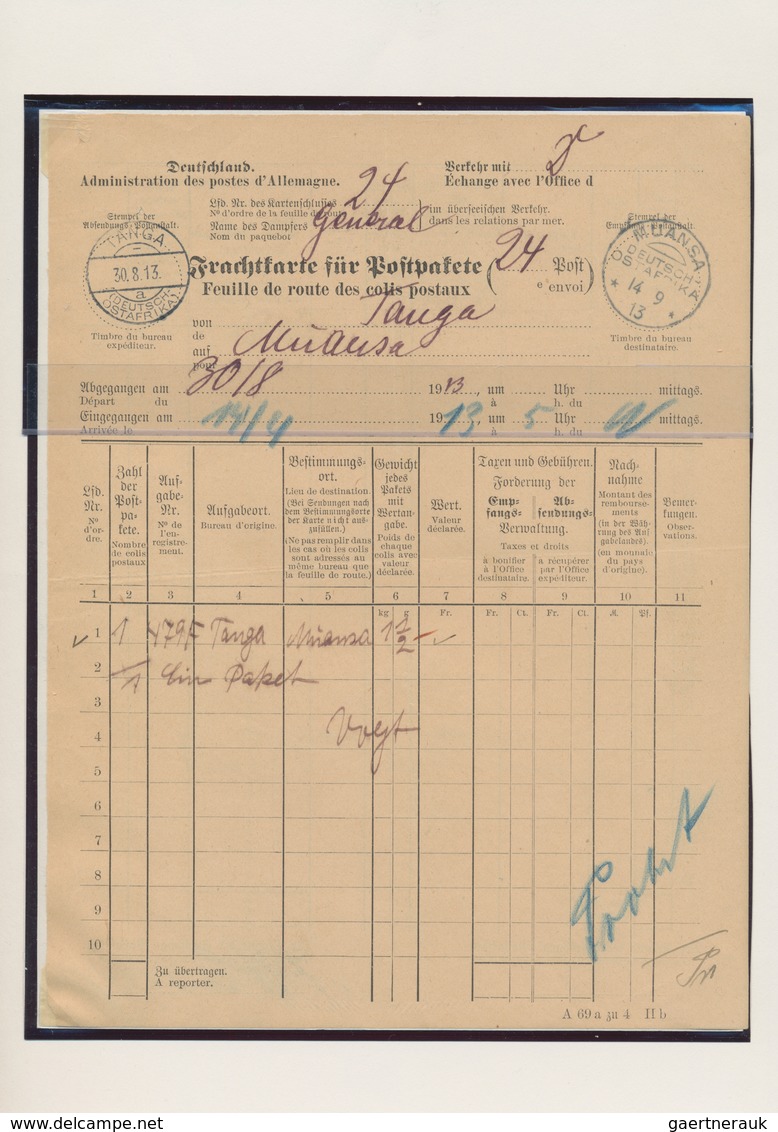 Deutschland.
Administration des postes d'Allemagne.
Verkehr mit D
Échange avec l'Office d
Lfd. Nr. des Kartenschlusses 24
Nº d'ordre de la feuille de route
Name des Dampfers General
Nom du paquebot
im überseeischen Verkehr.
dans les relations par mer.
Stempel der
Absendungs-Postanstalt.
TANGA
30.8.13.
a
(DEUTSCH-
OSTAFRIKA)
Timbre du bureau
expéditeur.
Stempel der
Empfangs-Postanstalt.
MUANSA
DEUTSCH-
OSTAFRIKA
14 9
13
Timbre du bureau
destinataire.
Frachtkarte für Postpakete (24 Post)
Feuille de route des colis postaux (e envoi)
von Tanga
de
auf Muansa
pour
Abgegangen am 30/8 1913, um Uhr mittags.
Départ du à h. du
Eingegangen am 1913, um 5 Uhr N mittags.
Arrivée le à h. du
Lfd.
Nr.
Nº
d'or-
dre.
Zahl
der
Post-
pa-
kete.
Nombre
de colis
postaux
Auf-
gabe-
Nr.
Nº de
l'en-
registre-
ment.
Aufgabeort.
Bureau d'origine.
Bestimmungs-
ort.
Lieu de destination.
(Bei Sendungen nach
dem Bestimmungsorte
der Karte nicht aus-
zufüllen.)
(Ne pas remplir dans
les cas où les colis
sont adressés au
même bureau que
la feuille de route.)
Gewicht
jedes
Pakets
mit
Wertan-
gabe.
Poids de
chaque
colis avec
valeur
déclarée.
Wert.
Valeur
déclarée.
Taxen und Gebühren.
Forderung der
Emp-
fangs-
Ab-
sendungs-
Verwaltung.
Taxes et droits
à bonifier
à l'Office
destinataire.
à récupérer
par l'Office
expéditeur.
Nach-
nahme
Montant des
rembourse-
ments
(in der Wäh-
rung des Auf-
gabelandes).
(en monnaie
du pays
d'origine).
Bemer-
kungen.
Obser-
vations.
1 2 3 4 5 6 7 8 9 10 11
kg g Fr. Fr. Ct. Fr. Ct. M. Pf.
1 1 479F Tanga Muansa 1 1/2 –
2 Ein Paket
3 Vogt
4
5
6
7
8
9
10
Zu übertragen.
A reporter.
A 69 a zu 4 II b
www.delcampe.net
gaertnerauk